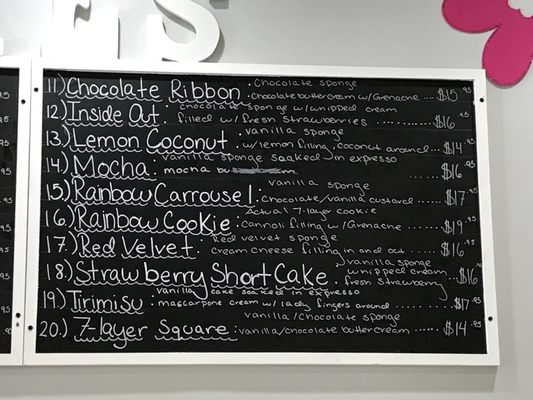 11.) Chocolate Ribbon : Chocolate sponge
chocolate buttercream w/ Grenache ... $15.95
12.) Inside Out : chocolate sponge w/ whipped cream
filled w/ fresh strawberries .......... $16.95
13.) Lemon Coconut : vanilla sponge
w/ lemon filling, coconut around ... $14.95
14.) Mocha : vanilla sponge soaked in expresso
mocha $16.95
15.) Rainbow Carrousel : vanilla sponge
chocolate/vanilla custard ...... $17.95
16.) Rainbow Cookie : Actual 7-layer cookie
Cannoli filling w/ Grenache .... $19.95
17.) Red Velvet : Red velvet sponge
cream cheese filling in and out ...... $16.95
18.) Strawberry Short Cake : vanilla sponge
whipped cream ... $16.95
fresh strawberry
19.) Tirimisu : vanilla cake soaked in expresso
mascarpone cream w/ lady fingers around ...... $17.95
20.) 7-layer Square : vanilla/Chocolate sponge
vanilla/chocolate buttercream ...... $14.95